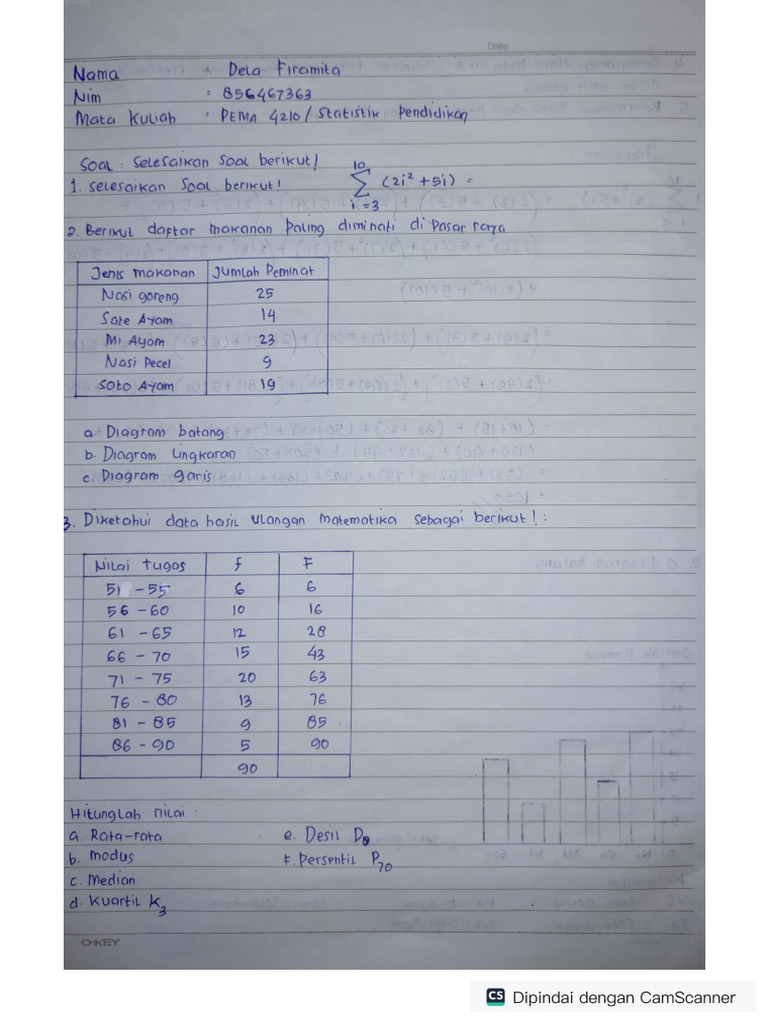 Date
Nama : Dela Firamita
Nim : 856467363
Mata Kuliah : PEMA 4210 / Statistik Pendidikan
Soal : Selesaikan Soal berikut!
1. Selesaikan Soal berikut! 10 ∑ i=3 (2i² + 5i) =
2. Berikut daftar makanan Paling diminati di Pasar raya
Jenis makanan Jumlah Peminat
Nasi goreng 25
Sate Ayam 14
Mi Ayam 23
Nasi Pecel 9
Soto Ayam 19
a. Diagram batang
b. Diagram lingkaran
c. Diagram garis
3. Diketahui data hasil ulangan matematika sebagai berikut! :
Nilai tugas f F
51 - 55 6 6
56 - 60 10 16
61 - 65 12 28
66 - 70 15 43
71 - 75 20 63
76 - 80 13 76
81 - 85 9 85
86 - 90 5 90
90
Hitunglah nilai :
a. Rata-rata e. Desil D8
b. modus F. Persentil P70
c. Median
d. Kuartil K3
O-KEY
CS Dipindai dengan CamScanner